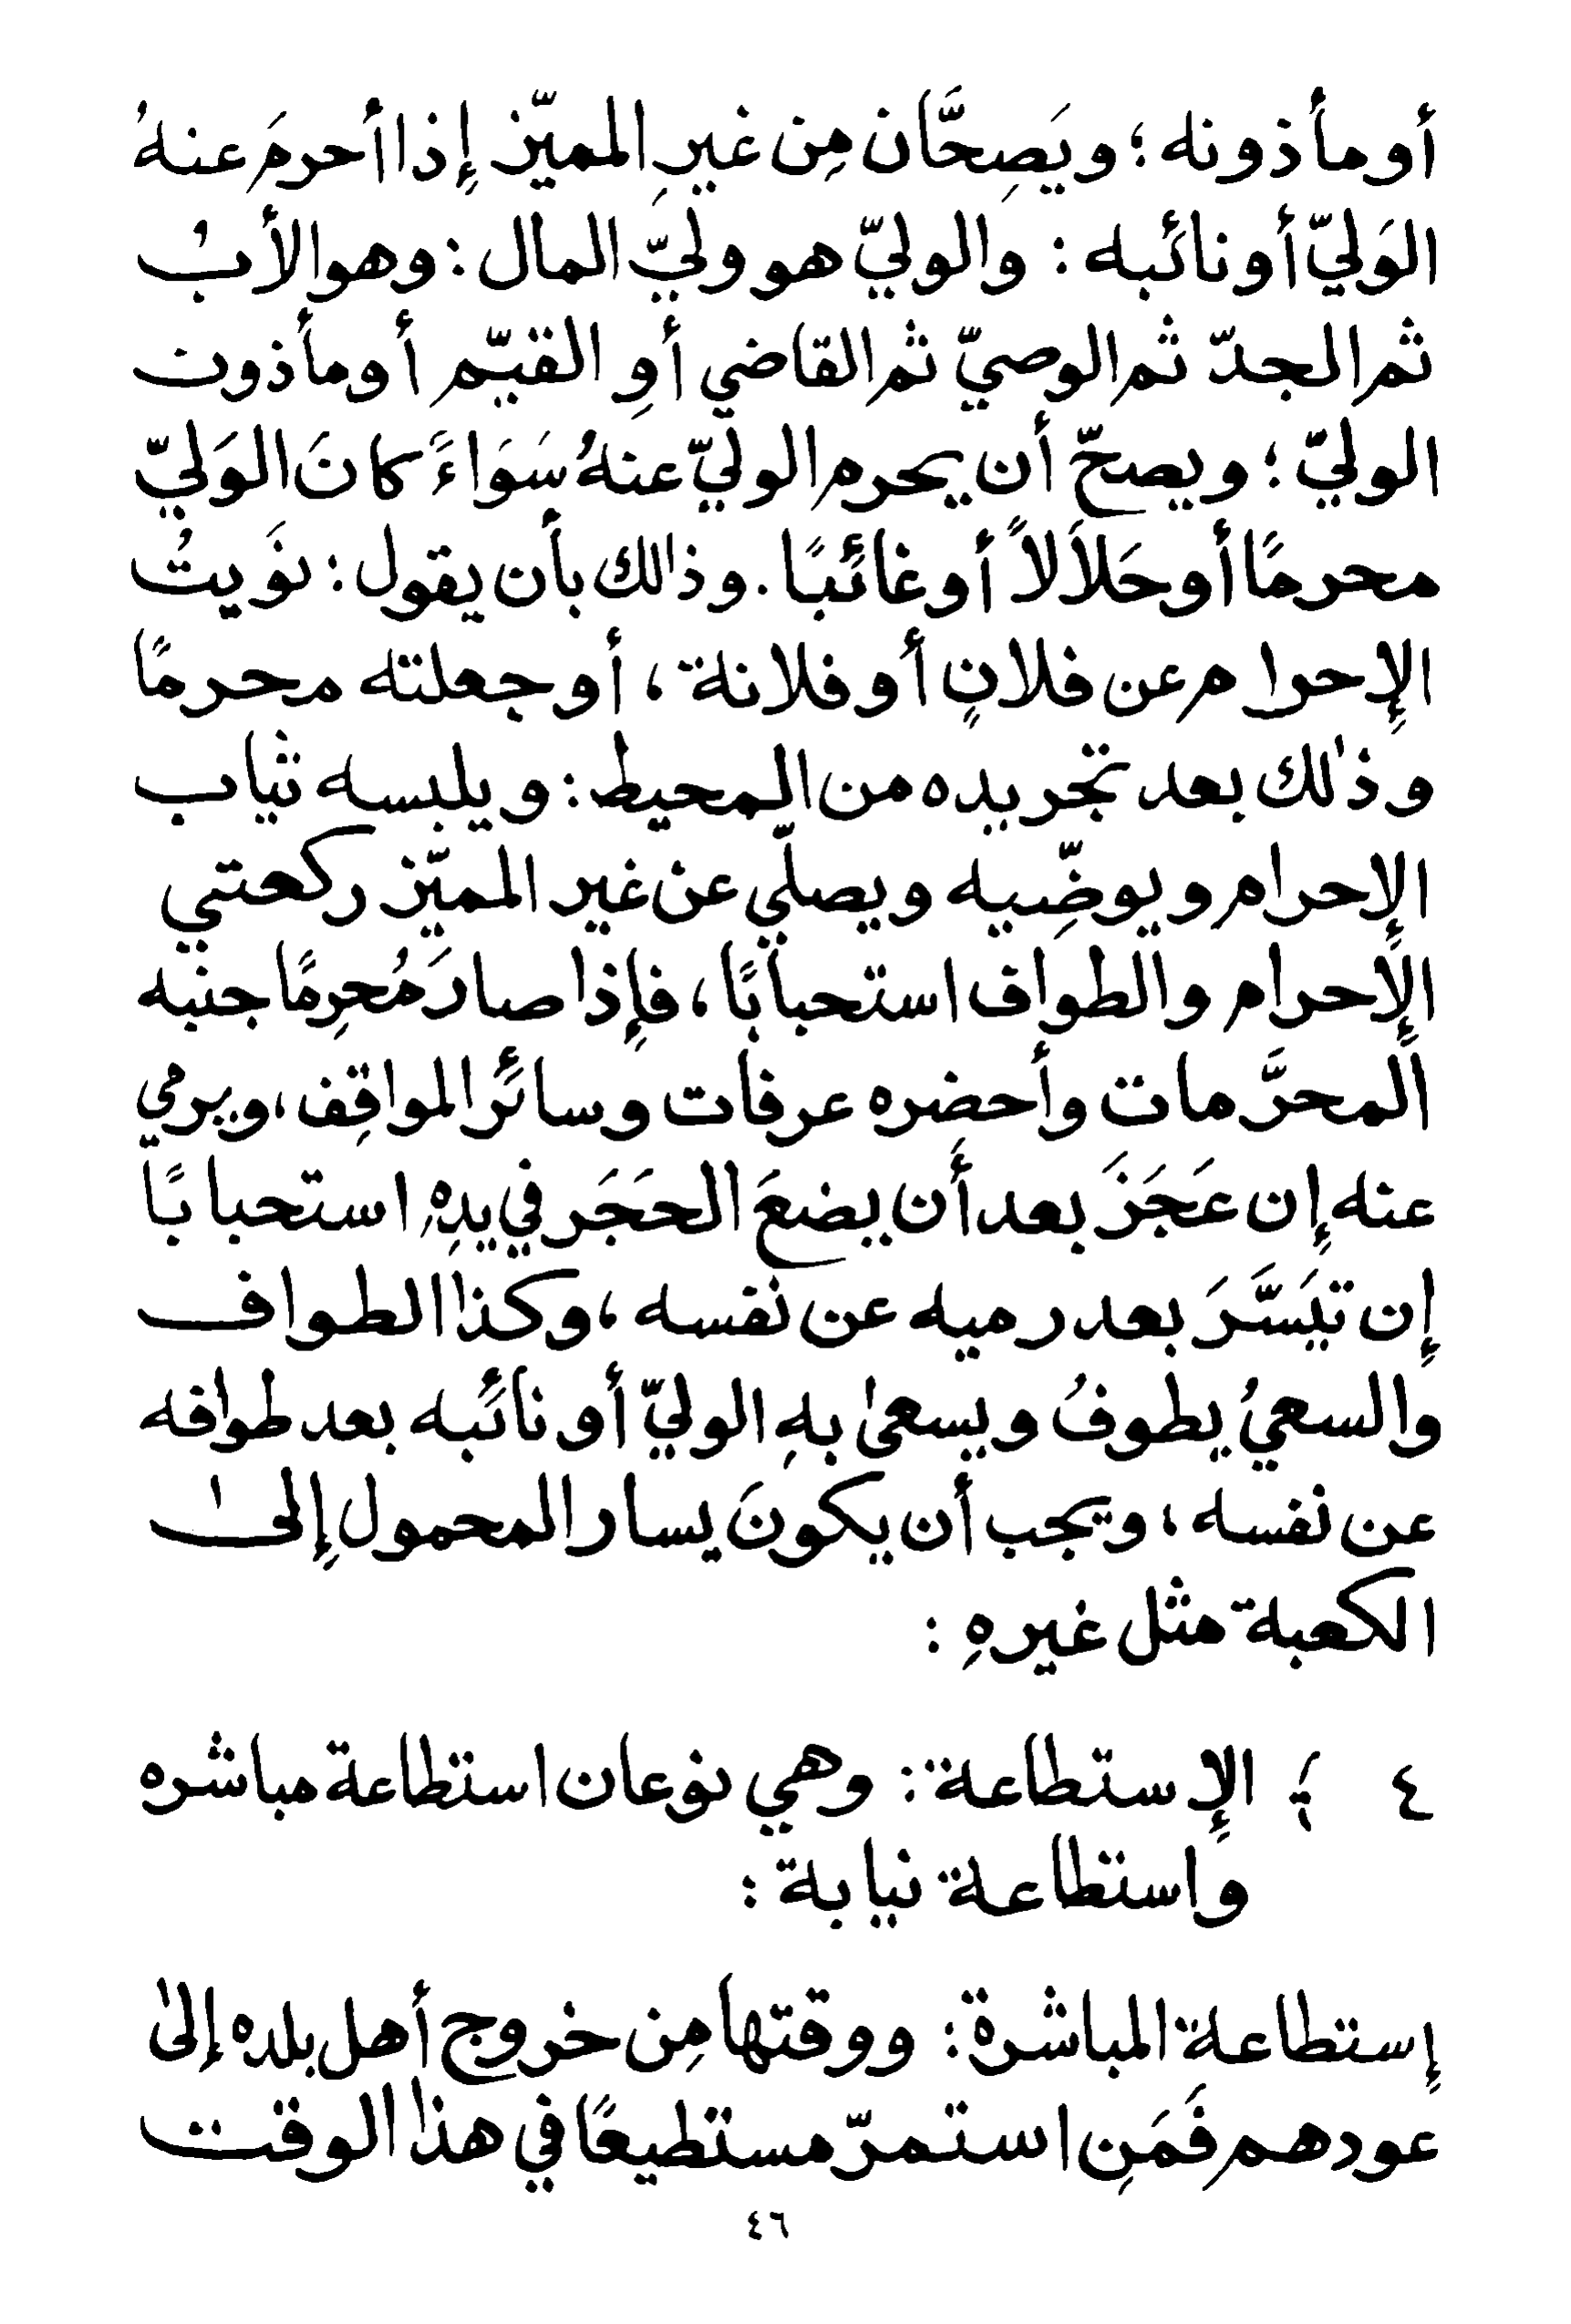 أو مأذونه ؛ ويَصِحَّان مِن غيرِ المميّز إِذا أحرمَ عنهُ
الوَليّ أو نائبه : والوليّ هو وليّ المال : وهو الأبُ
ثم الجدّ ثم الوصيّ ثم القاضي أوِ القيّم أو مأذون
الوليّ ؛ ويصحّ أن يحرم الوليّ عنهُ سَوَاءً كانَ الوَليّ
محرمًا أو حَلاَلاً أو غائبًا . وذٰلك بأن يقول : نوَيتُ
الإحرام عن فلانٍ أو فلانة ، أو جعلته محرمًا
وذٰلك بعد تجريده من المحيط : ويلبسه ثياب
الإحرام ويوضِّيه ويصلّي عن غير المميّز ركعتي
الإحرام والطواف استحبابًا ، فإذا صارَ مُحرِمًا جنبه
المحرَّمات وأحضره عرفات وسائر المواقِف ، ويرمي
عنه إن عَجَزَ بعد أن يضعَ الحَجَر في يدِهِ استحبابًا
إن تيَسَّرَ بعد رميه عن نفسه ، وكذا الطواف
والسعيُ يطوفُ ويسعىٰ بهِ الوليّ أو نائبه بعد طوافه
عن نفسه ، ويجب أن يكونَ يسار المحمول إلىٰ
الكعبة مثل غيرهِ :
٤ ؛ الإستطاعة : وهي نوعان استطاعة مباشره
واستطاعة نيابة :
إستطاعة المباشرة : ووقتها مِن خروج أهل بلده إلىٰ
عودهم فَمَنِ استمرّ مستطيعًا في هذا الوقت
٤٦